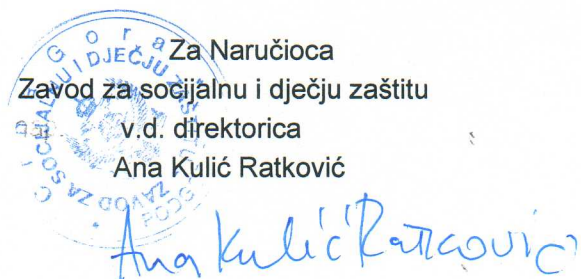 Za Naručioca
Zavod za socijalnu i dječju zaštitu
v.d. direktorica
Ana Kulić Ratković
Ana Kulić Ratković